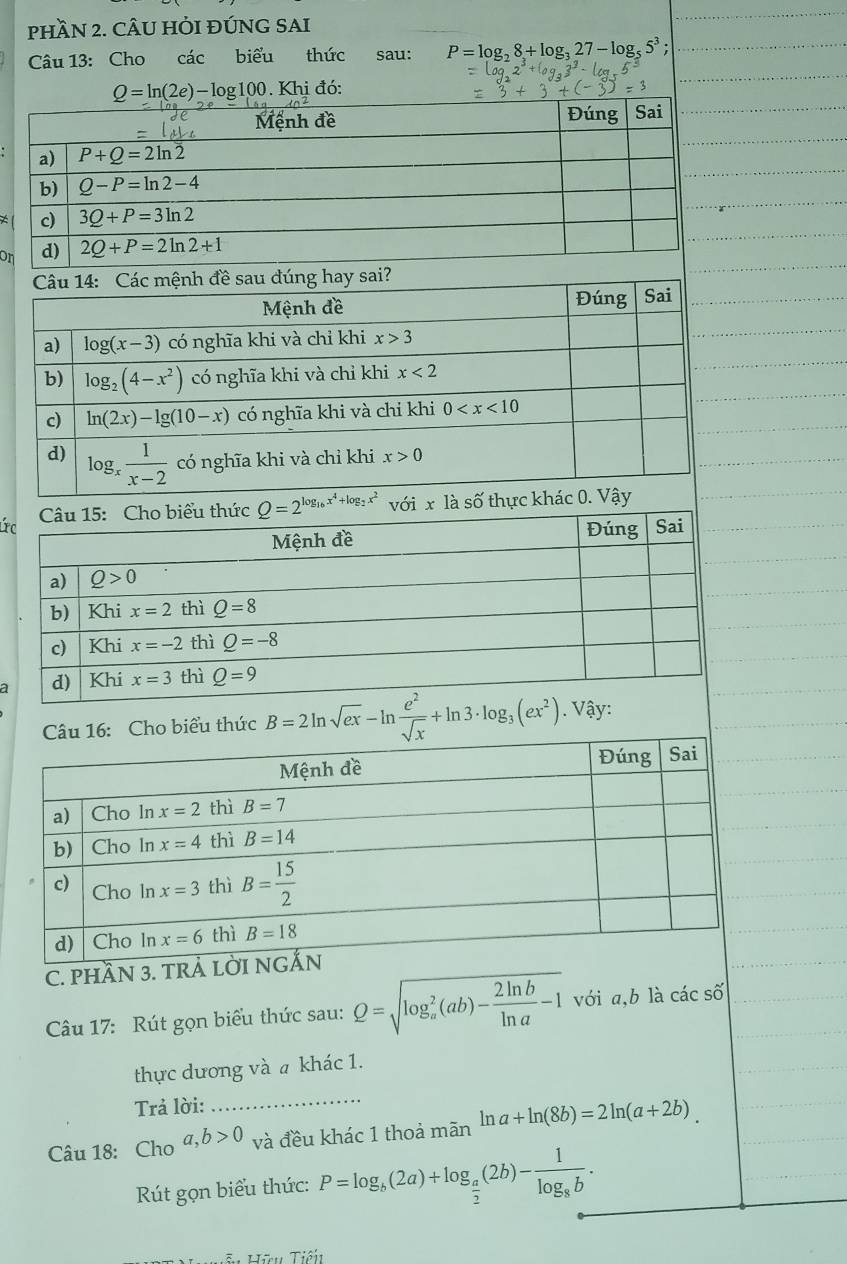 PHẦN 2. CÂU HỎI ĐÚNG SAI
Câu 13: Cho các biểu thức sau: P = log₂ 8 + log₃ 27 − log₅ 5³ ;
= log₂ 2³ + log₃ 3³ - log₅ 5³
Q = ln(2e) − log100. Khi đó:
= 3 + 3 + (-3) = 3
Mệnh đề Đúng Sai
a) P + Q = 2 ln 2
b) Q − P = ln 2 − 4
c) 3Q + P = 3 ln 2
d) 2Q + P = 2 ln 2 + 1
Câu 14: Các mệnh đề sau đúng hay sai?
Mệnh đề Đúng Sai
a) log(x − 3) có nghĩa khi và chỉ khi x > 3
b) log₂(4 − x²) có nghĩa khi và chỉ khi x < 2
c) ln(2x) − lg(10 − x) có nghĩa khi và chỉ khi 0 < x < 10
d) logₓ 1/(x − 2) có nghĩa khi và chỉ khi x > 0
Câu 15: Cho biểu thức Q = 2^(log₁₆ x⁴ + log₂ x²) với x là số thực khác 0. Vậy
Mệnh đề Đúng Sai
a) Q > 0
b) Khi x = 2 thì Q = 8
c) Khi x = −2 thì Q = −8
d) Khi x = 3 thì Q = 9
Câu 16: Cho biểu thức B = 2 ln √(ex) − ln e²/√x + ln 3 · log₃(ex²). Vậy:
Mệnh đề Đúng Sai
a) Cho ln x = 2 thì B = 7
b) Cho ln x = 4 thì B = 14
c) Cho ln x = 3 thì B = 15/2
d) Cho ln x = 6 thì B = 18
C. PHẦN 3. TRẢ LỜI NGẮN
Câu 17: Rút gọn biểu thức sau: Q = √(logₐ²(ab) − 2 ln b/ln a − 1) với a,b là các số
thực dương và a khác 1.
Trả lời: ....................
Câu 18: Cho a,b > 0 và đều khác 1 thoả mãn ln a + ln(8b) = 2 ln(a + 2b) .
Rút gọn biểu thức: P = log_b(2a) + log_(a/2)(2b) − 1/log₈ b .
Hữu Tiến